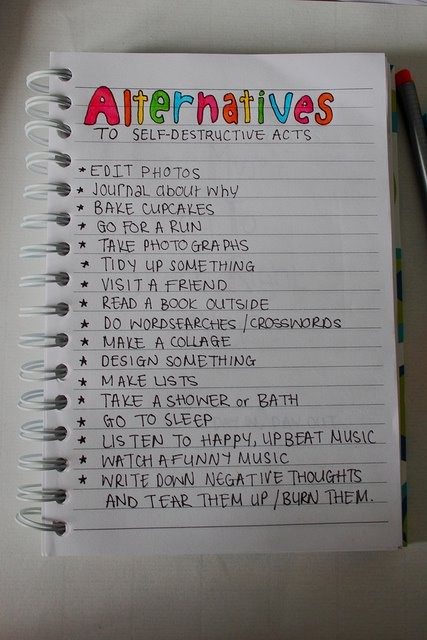 Alternatives
TO SELF-DESTRUCTIVE ACTS
* EDIT PHOTOS
* Journal about why
* BAKE CUPCAKES
* GO FOR A RUN
* TAKE PHOTOGRAPHS
* TIDY UP SOMETHING
* VISIT A FRIEND
* READ A BOOK OUTSIDE
* DO WORDSEARCHES / CROSSWORDS
* MAKE A COLLAGE
* DESIGN SOMETHING
* MAKE LISTS
* TAKE A SHOWER or BATH
* GO TO SLEEP
* LISTEN TO HAPPY, UPBEAT MUSIC
* WATCH A FUNNY MUSIC
* WRITE DOWN NEGATIVE THOUGHTS
AND TEAR THEM UP / BURN THEM.